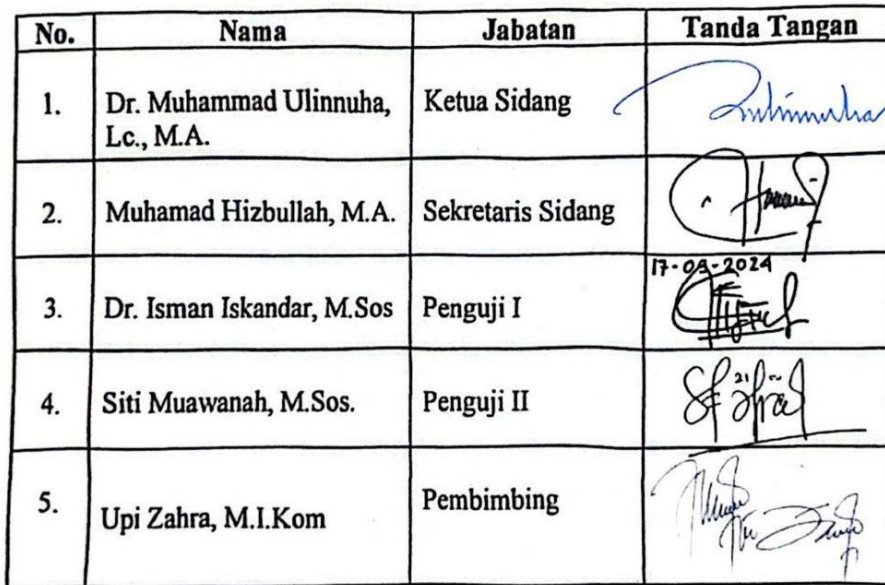 No. Nama Jabatan Tanda Tangan
1. Dr. Muhammad Ulinnuha, Ketua Sidang
Lc., M.A.
2. Muhamad Hizbullah, M.A. Sekretaris Sidang
17-09-2024
3. Dr. Isman Iskandar, M.Sos Penguji I
4. Siti Muawanah, M.Sos. Penguji II
5. Upi Zahra, M.I.Kom Pembimbing